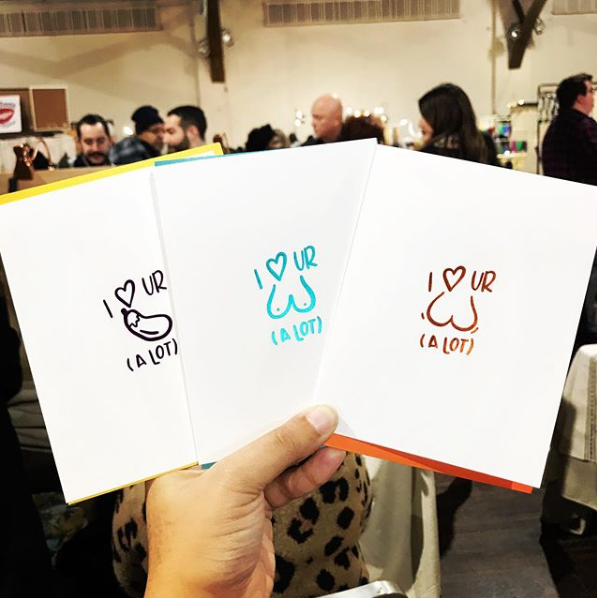 I ♡ UR
(A LOT)
I ♡ UR
(A LOT)
I ♡ UR
(A LOT)